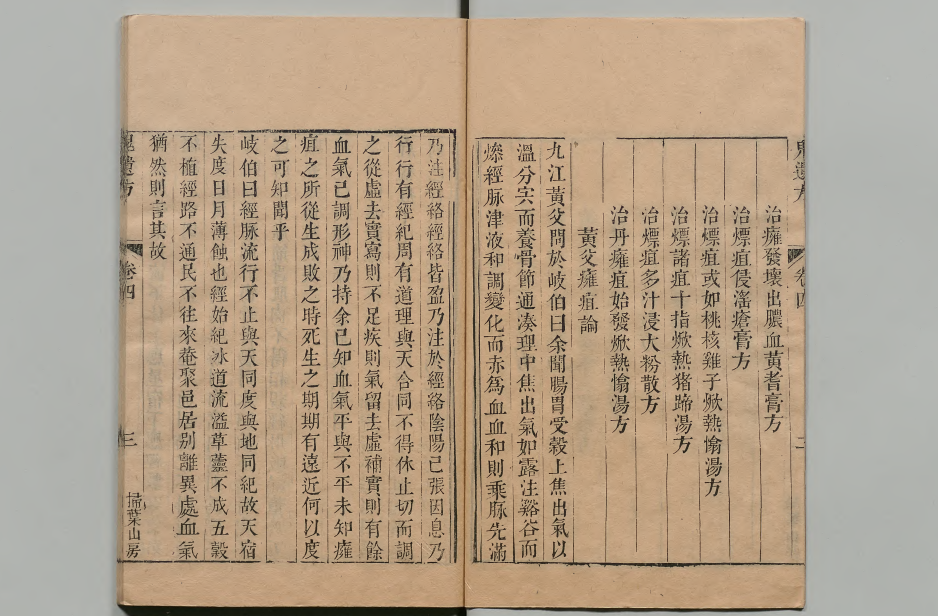 鬼遺方
卷四
治癰發壞出膿血黃耆膏方
治熛疽侵淫瘡膏方
治熛疽或如桃核雞子焮熱愉湯方
治熛諸疽十指焮熱猪蹄湯方
治熛疽多汁浸大粉散方
治丹癰疽始發焮熱愉湯方
黃父癰疽論
九江黃父問於岐伯曰余聞腸胃受穀上焦出氣以
溫分宍而養骨節通湊理中焦出氣如露注谿谷而
滲經脉津液和調變化而赤爲血血和則乘脉先滿
乃注經絡經絡皆盈乃注於經絡陰陽已張因息乃
行行有經紀周有道理與天合同不得休止切而調
之從虛去實寫則不足疾則氣留去虛補實則有餘
血氣已調形神乃持余已知血氣平與不平未知癰
疽之所從生成敗之時死生之期期有遠近何以度
之可知聞乎
岐伯曰經脉流行不止與天同度與地同紀故天宿
失度日月薄蝕地經始紀冰道流溢草蘆不成五穀
不植經路不通民不往來菴聚邑居别離異處血氣
猶然則言其故
鬼遺方
卷四
三
掃葉山房